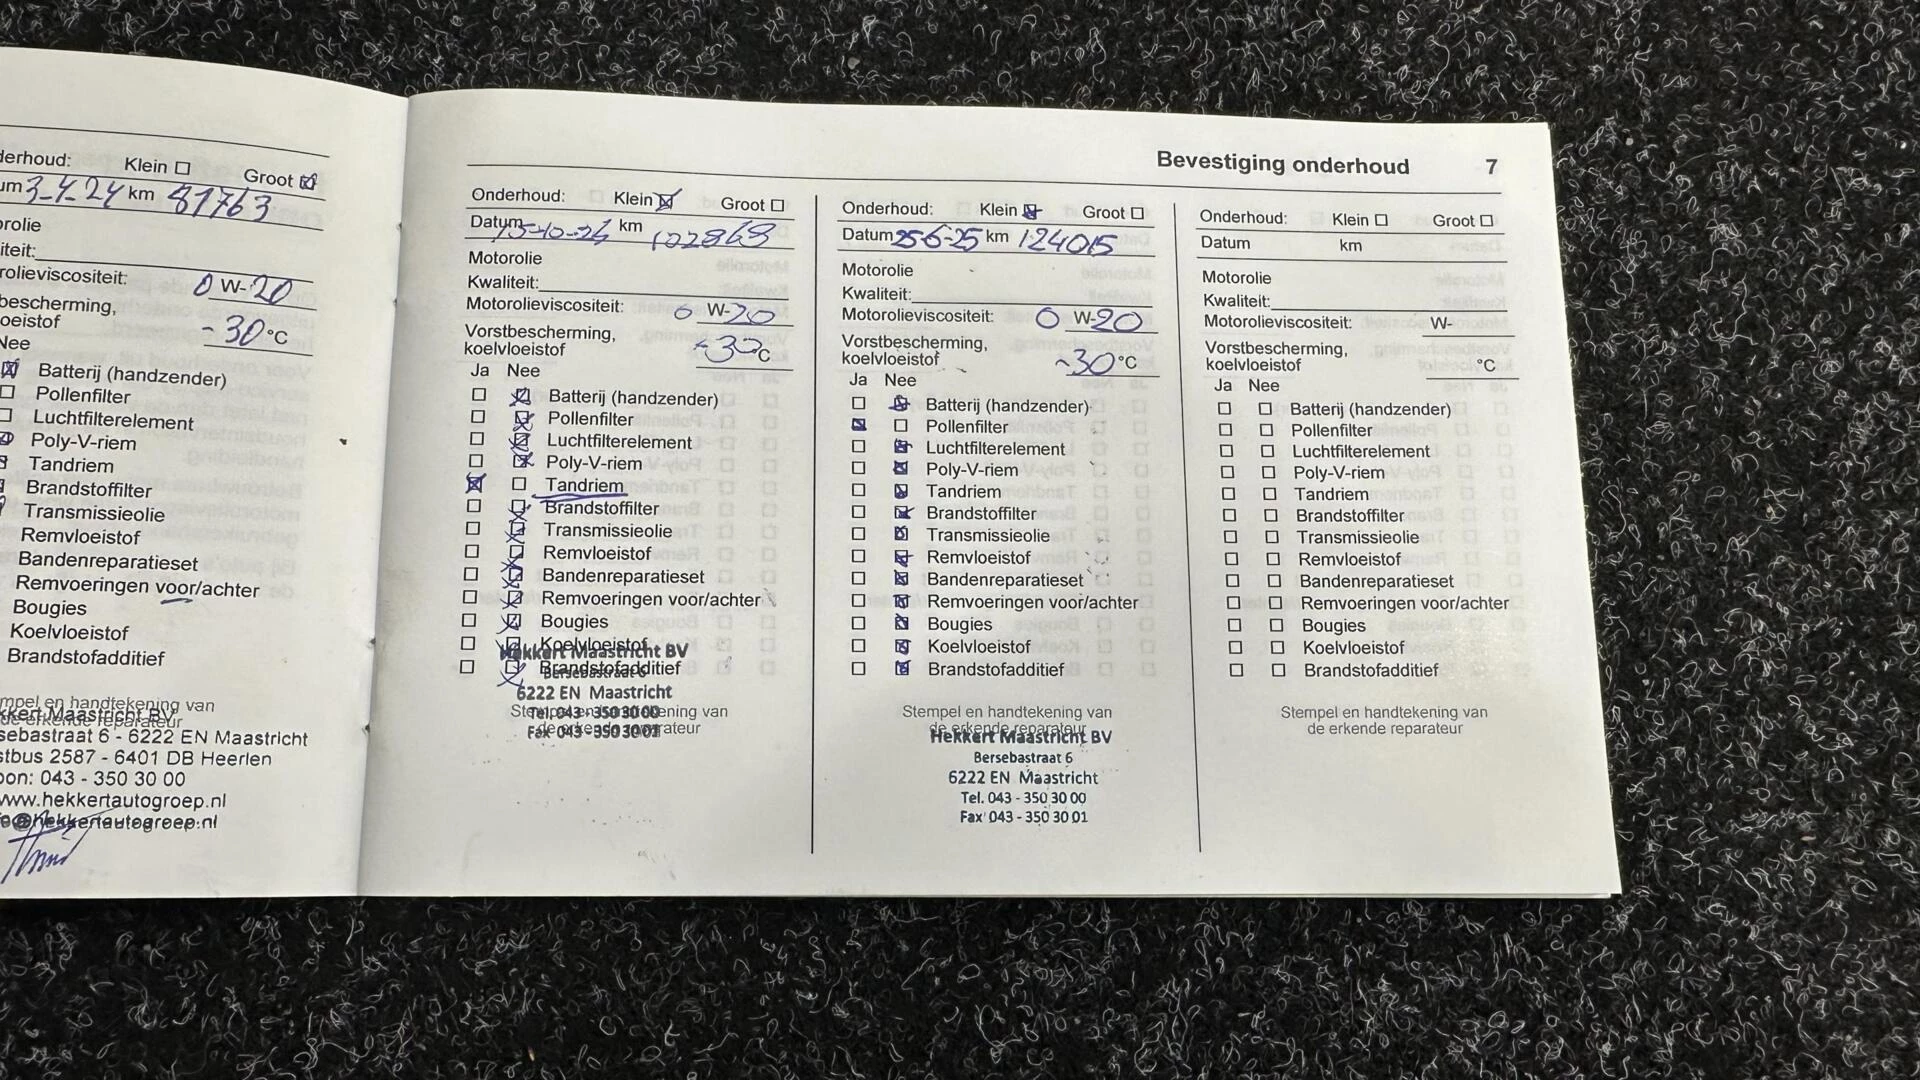 derhoud: Klein Groot
um 3-4-24 km 81763
orolie
iteit:
rolieviscositeit: 0 W-20
bescherming,
oeistof -30 °C
Nee
Batterij (handzender)
Pollenfilter
Luchtfilterelement
Poly-V-riem
Tandriem
Brandstoffilter
Transmissieolie
Remvloeistof
Bandenreparatieset
Remvoeringen voor/achter
Bougies
Koelvloeistof
Brandstofadditief
mpel en handtekening van
de erkende reparateur
kkert Maastricht BV
sebastraat 6 - 6222 EN Maastricht
stbus 2587 - 6401 DB Heerlen
oon: 043 - 350 30 00
www.hekkertautogroep.nl
@hekkertautogroep.nl
Bevestiging onderhoud 7
Onderhoud: Klein Groot
Datum km 102868
Motorolie
Kwaliteit:
Motorolieviscositeit: 0 W-20
Vorstbescherming,
koelvloeistof -30 °C
Ja Nee
Batterij (handzender)
Pollenfilter
Luchtfilterelement
Poly-V-riem
Tandriem
Brandstoffilter
Transmissieolie
Remvloeistof
Bandenreparatieset
Remvoeringen voor/achter
Bougies
Koelvloeistof
Brandstofadditief
Stempel en handtekening van
de erkende reparateur
Hekkert Maastricht BV
Bersebastraat 6
6222 EN Maastricht
Tel. 043 - 350 30 00
Fax 043 - 350 30 01
Onderhoud: Klein Groot
Datum 25-6-25 km 124015
Motorolie
Kwaliteit:
Motorolieviscositeit: 0 W-20
Vorstbescherming,
koelvloeistof -30 °C
Ja Nee
Batterij (handzender)
Pollenfilter
Luchtfilterelement
Poly-V-riem
Tandriem
Brandstoffilter
Transmissieolie
Remvloeistof
Bandenreparatieset
Remvoeringen voor/achter
Bougies
Koelvloeistof
Brandstofadditief
Stempel en handtekening van
de erkende reparateur
Hekkert Maastricht BV
Bersebastraat 6
6222 EN Maastricht
Tel. 043 - 350 30 00
Fax 043 - 350 30 01
Onderhoud: Klein Groot
Datum km
Motorolie
Kwaliteit:
Motorolieviscositeit: W-
Vorstbescherming,
koelvloeistof °C
Ja Nee
Batterij (handzender)
Pollenfilter
Luchtfilterelement
Poly-V-riem
Tandriem
Brandstoffilter
Transmissieolie
Remvloeistof
Bandenreparatieset
Remvoeringen voor/achter
Bougies
Koelvloeistof
Brandstofadditief
Stempel en handtekening van
de erkende reparateur